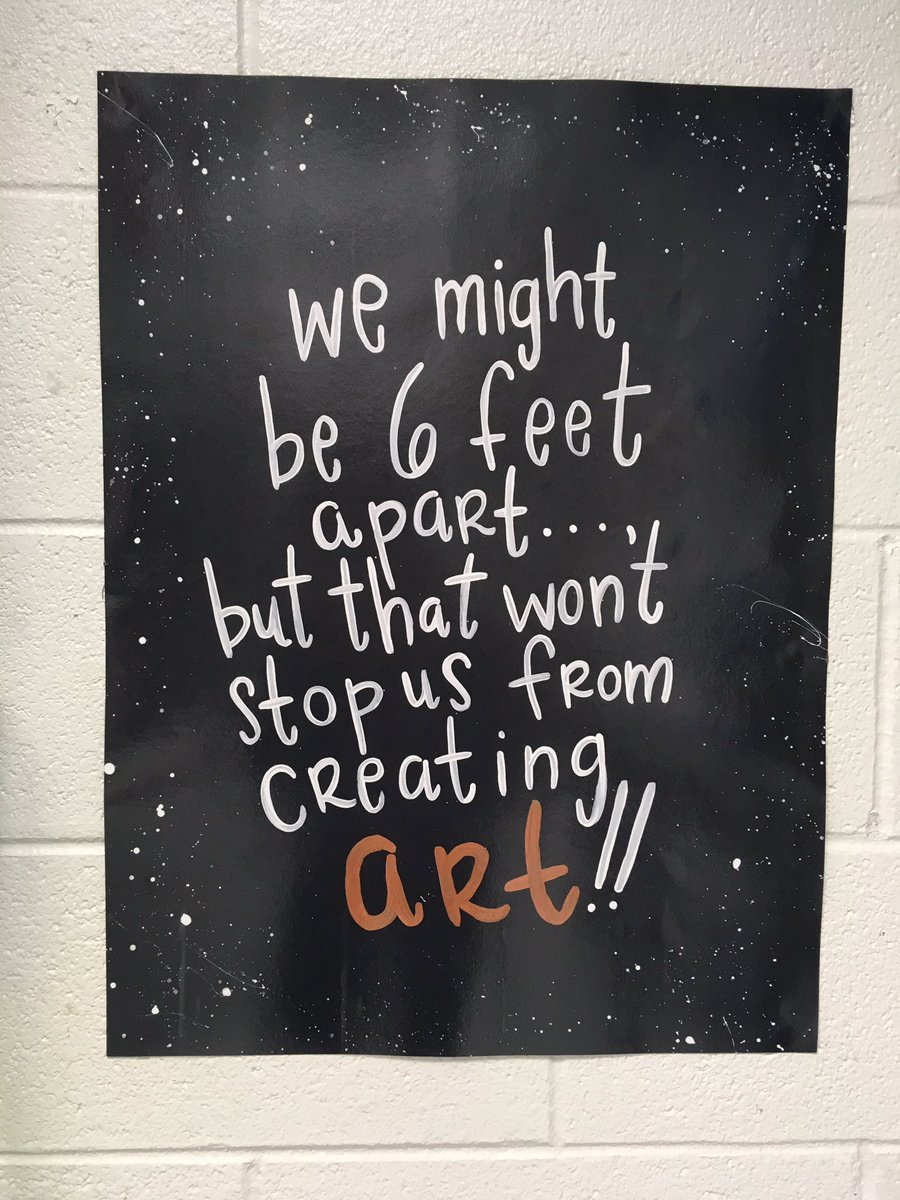 we might
be 6 feet
apart....,
but that won't
stop us from
creating
art!!